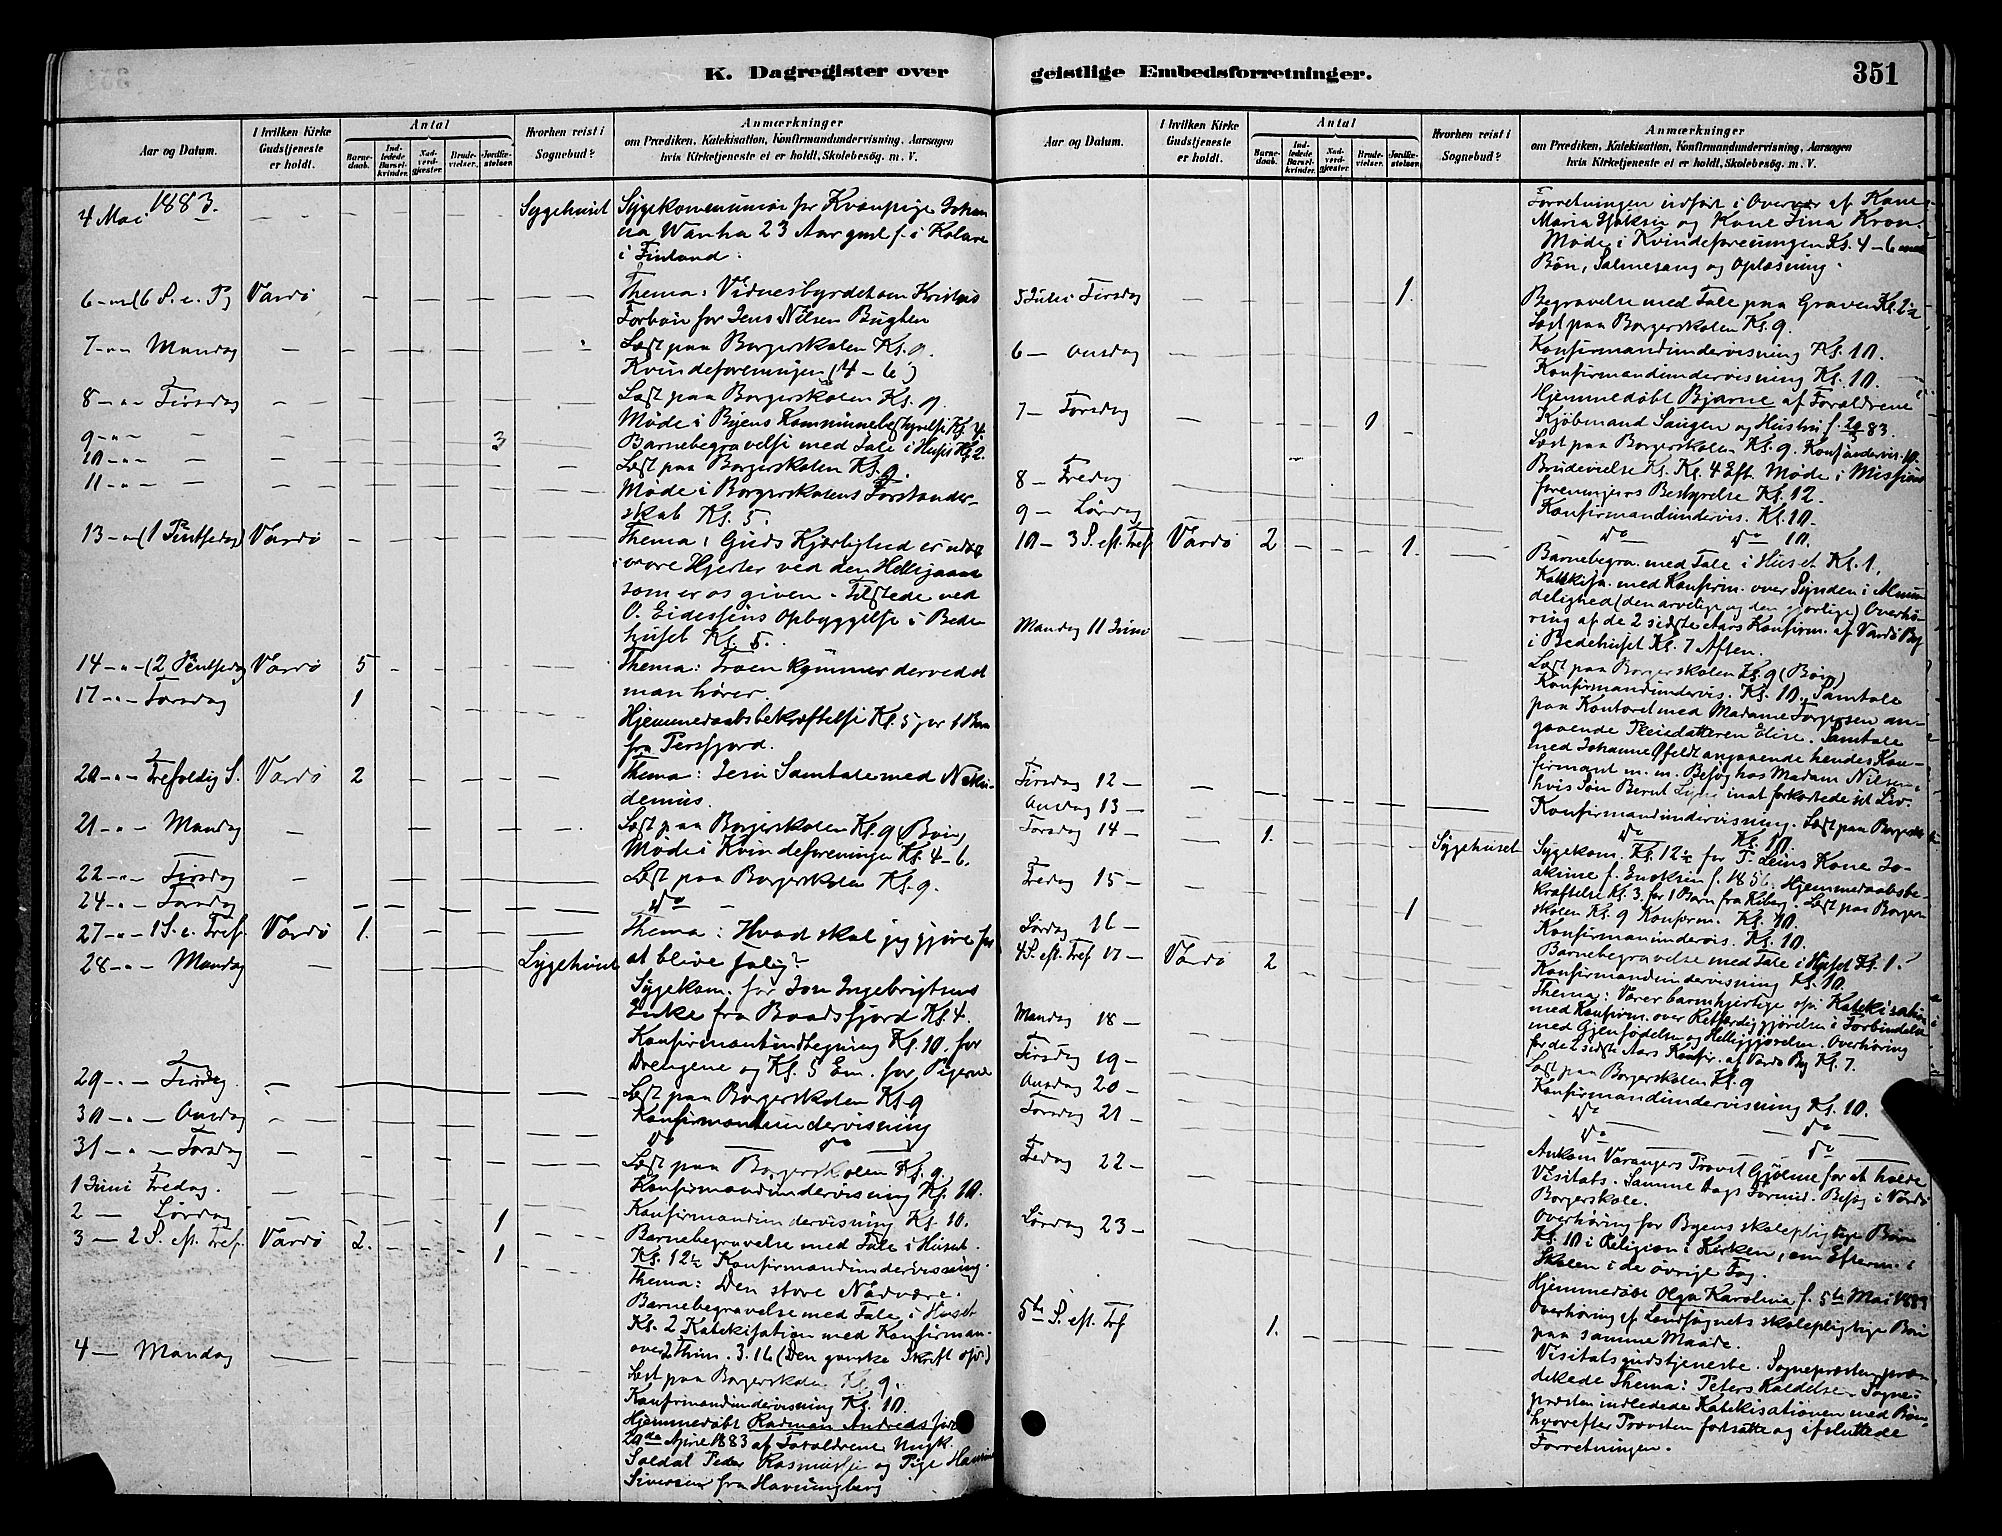 K. Dagregister over geistlige Embedsforretninger.
351
Aar og Datum.
I hvilken Kirke Gudstjeneste er holdt.
Antal
Barnedaab.
Indledede Barselkvinder.
Nadverdgjæster.
Brudevielser.
Jordfæstelser.
Hvorhen reist i Sognebud?
Anmærkninger
om Prædiken, Katekisation, Konfirmandundervisning, Aarsagen
hvis Kirketjeneste ei er holdt, Skolebesøg. m. V.
1883.
4 Mai - - - - - - Sygehuset Sygekommunion for Kvænpige Johan
na Wanha 23 Aar gml f. i Kolare
i Finland.
6 - (6 S. e. P) Vardø - - - - - Thema: Vidnesbyrdet om Kristus
Forbøn for Jens Nilsen Bugten
7 - Mandag - - - - - Læst paa Borgerskolen Kl. 9.
Kvindeforeningen (4-6)
8 - Tirsdag - - - - - Læst paa Borgerskolen Kl. 9.
Møde i Byens Kommunebestyrelse Kl. 4.
9 - - - - - - - 3 Barnebegravelse med Tale i Huset Kl. 2.
10 - - - - - - Læst paa Borgerskolen Kl. 9.
11 - - - Møde i Borgerskolens Forstander-
skab Kl. 5.
13 - (1 Pintsedag) Vardø Thema: Guds Kjærlighed er udøst
i vore Hjerter ved den Helligaand
som er os given - Tilstede ved
O. Eidessens Opbyggelse i Bede
huset Kl. 5.
14 - (2 Pintsedag Vardø 5 - - - - Thema: Troen kommer derved at
man hører.
17 - Torsdag 1 - - - Hjemmedaabsbekræftelse Kl. 5 for 1 Barn
fra Persfjord.
20 - Trefoldig S. Vardø 2 - - - Thema: Jesu Samtale med Niko-
demus.
21 - Mandag - - - - Læst paa Borgerskolen Kl. 9 (Bøn)
Møde i Kvindeforeningen Kl. 4-6.
22 - Tirsdag - - - - Læst paa Borgerskolen Kl. 9.
24 - Torsdag - - - - do -
27 - 1 S. e. Tref. Vardø 1. - - - Thema: Hvad skal jeg gjøre for
at blive salig?
28 - Mandag - - - - Sygehuset
Sygekom. for Jon Ingebrigtsens
Enke fra Baadsfjord Kl. 4.
Konfirmantindtegning Kl. 10. for
Drengene og Kl. 5 Em. for Pigerne
29 - Tirsdag - - - - Læst paa Borgerskolen Kl. 9
30 - Onsdag - - - - Konfirmantundervisning
31 - Torsdag - - - - do - do -
Læst paa Borgerskolen Kl. 9.
1 Juni Fredag. - - - - Konfirmandundervisning Kl. 10.
2 - Lørdag - - - - 1 Konfirmandundervisning Kl. 10.
Barnebegravelse med Tale i Huset.
3 - 2 S. eft. Tref. Vardø 2. - - - 1 Kl. 12½ Konfirmandundervisning.
Thema: Den store Nadvære.
Barnebegravelse med Tale i Huset
Kl. 2 Katekisation med Konfirman.
over 2 Thim. 3.16 (Den ganske Skrift osv.)
4 - Mandag - - - Læst paa Borgerskolen Kl. 9.
Konfirmandundervisning Kl. 10.
Hjemmedøbt Rasmus Andreas født
20de April 1883 af Forældrene Ungk.
Soldat Peder Rasmussen og Pige
Siversen fra Havningberg
Aar og Datum.
I hvilken Kirke Gudstjeneste er holdt.
Antal
Barnedaab.
Indledede Barselkvinder.
Nadverdgjæster.
Brudevielser.
Jordfæstelser.
Hvorhen reist i Sognebud?
Anmærkninger
om Prædiken, Katekisation, Konfirmandundervisning, Aarsagen
hvis Kirketjeneste ei er holdt, Skolebesøg. m. V.
Forretningen udført i Overvær af Kone
Maria Isaksen og Kone Lina Kron.
Møde i Kvindeforeningen Kl. 4-6 med
Bøn, Salmesang og Oplæsning.
5 Juni Tirsdag - - - - 1. Begravelse med Tale paa Graven Kl. 1½
Læst paa Borgerskolen Kl. 9.
6 - Onsdag - - - - Konfirmandundervisning Kl. 10.
Konfirmandundervisning Kl. 10.
Hjemmedøbt Bjarne af Forældrene
7 - Torsdag - - - 1 - Kjøbmand Saugen og Hustru f. 83.
Læst paa Borgerskolen Kl. 9. Konf. undervis. 10.
8 - Fredag Brudevielse Kl. 4 Eft. Møde i Missions
foreningens Bestyrelse Kl. 12.
9 - Lørdag Konfirmandundervis. Kl. 10.
do do 10.
10 - 3 S. eft. Tref Vardø 2 - - - 1. Barnebegra. med Tale i Huset Kl. 1.
Katekisa. med Konfirm. over Synden i Almin
delighed (den arvelige og den gjorlige) Overhø-
ring af de 2 sidste Aars Konfirm. af Vardø By
i Bedehuset Kl. 7 Aften.
Mandag 11 Juni - - - Læst paa Borgerskolen Kl. 9 (Bøn)
Konfirmandundervis. Kl. 10. Samtale
paa Kontoret med Madame Torgersen an-
gaaende Pleiedatteren Elise. Samtale
med Johanne Øfeldt angaaende hendes Kon-
firmant m. m. Besøg hos Madam Nilsen,
hvis Søn Bernt inat forkortede sit Liv.
Tirsdag 12 - - Konfirmandundervisning. Læst paa Borgersk
Onsdag 13 - - do Kl. 10.
Torsdag 14 - 1. Sygehuset Sygekom. Kl. 12½ for T. Leins Kone Jo-
akime f. Enoksen f. 1856. Hjemmedaabsbe-
kræftelse Kl. 3. for 1 Barn fra Kiberg. Læst paa Borger
Fredag 15 - - 1 skolen Kl. 9 Konfirm. Kl. 10.
Konfirmanundervis. Kl. 10.
Lørdag 16 - - Barnebegravelse med Tale i Huset Kl. 1.
Konfirmandundervisning Kl. 10.
4 S. eft. Tref 17 - Vardø 2 - Thema: Værer barmhjertige osv. Katekisation
med Konfirm. over Retfærdiggjørelsen i Forbindelse
med Gjenfødelsen og Helliggjørelsen. Overhøring
for de 2 sidste Aars Konfir. af Vardø By Kl. 7.
Mandag 18 - Læst paa Borgerskolen Kl. 9
Tirsdag 19 - Konfirmandundervisning Kl. 10.
Onsdag 20 - - do -
Torsdag 21 - do - do -
Fredag 22 - Ankom Varangers Provst Gjølme for at holde
Visitats. Samme Dags Formid. Besøg i Vardø
Borgerskole.
Lørdag 23 - Overhøring for Byens skolepligtige Børn
Kl. 10 i Religion i Kirken, om Efterm. i
Skolen i de øvrige Fag.
Hjemmedøbt Olga Karolina f. 5te Mai 1883
5te S. eft. Trf 1. - Overhøring af Landsognets skolepligtige Børn
paa samme Maade.
Visitatsgudstjeneste. Sognepræsten præ-
dikede Thema: Peters Kaldelse. Sogne-
præsten indledede Katekisationen med Børn
hvorefter Provsten fortsatte og afsluttede
Forretningen.